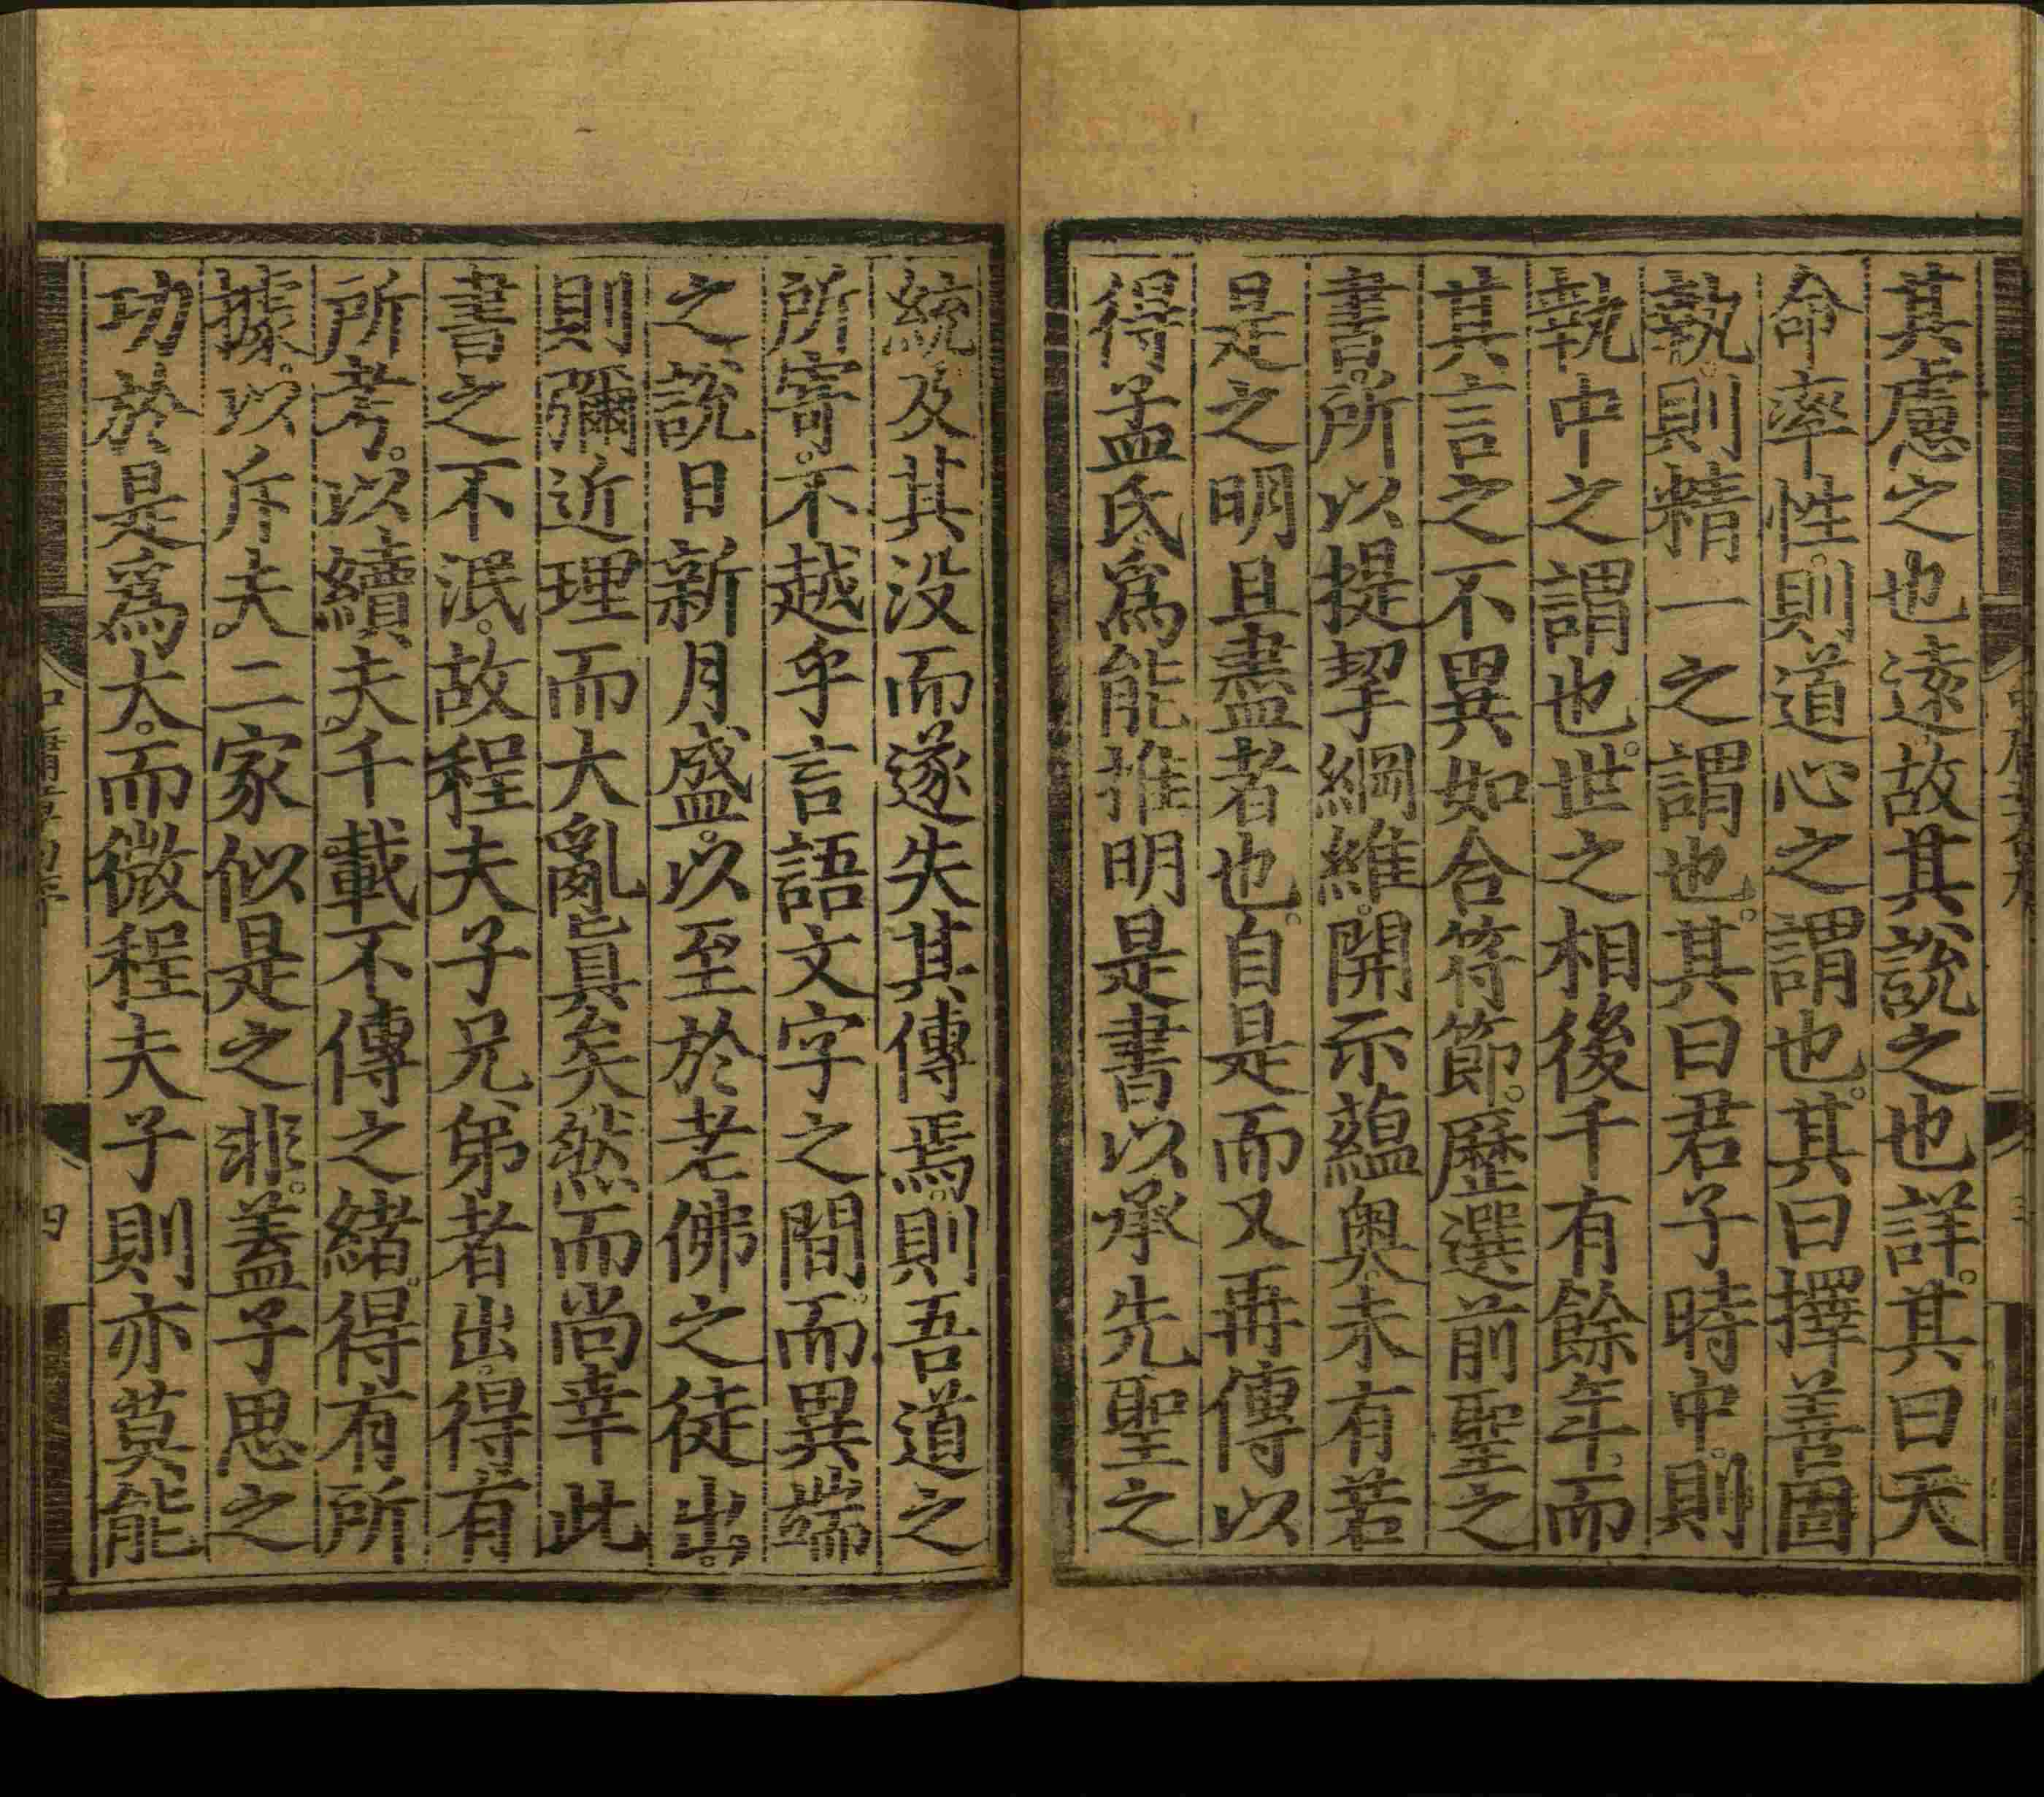 其慮之也遠故其說之也詳。其曰天
命率性。則道心之謂也。其曰擇善固
執。則精一之謂也。其曰君子時中。則
執中之謂也。世之相後千有餘年。而
其言之不異如合符節。歷選前聖之
書。所以提挈綱維。開示蘊奧。未有若
是之明且盡者也。自是而又再傳以
得孟氏。爲能推明是書以承先聖之
統及其没而遂失其傳焉。則吾道之
所寄。不越乎言語文字之間。而異端
之說日新月盛。以至於老佛之徒出。
則彌近理而大亂眞矣然而尚幸此
書之不泯。故程夫子兄弟者出。得有
所考。以續夫千載不傳之緒。得有所
據。以斥夫二家似是之非。蓋子思之
功於是爲大。而微程夫子則亦莫能
中庸章句序
四